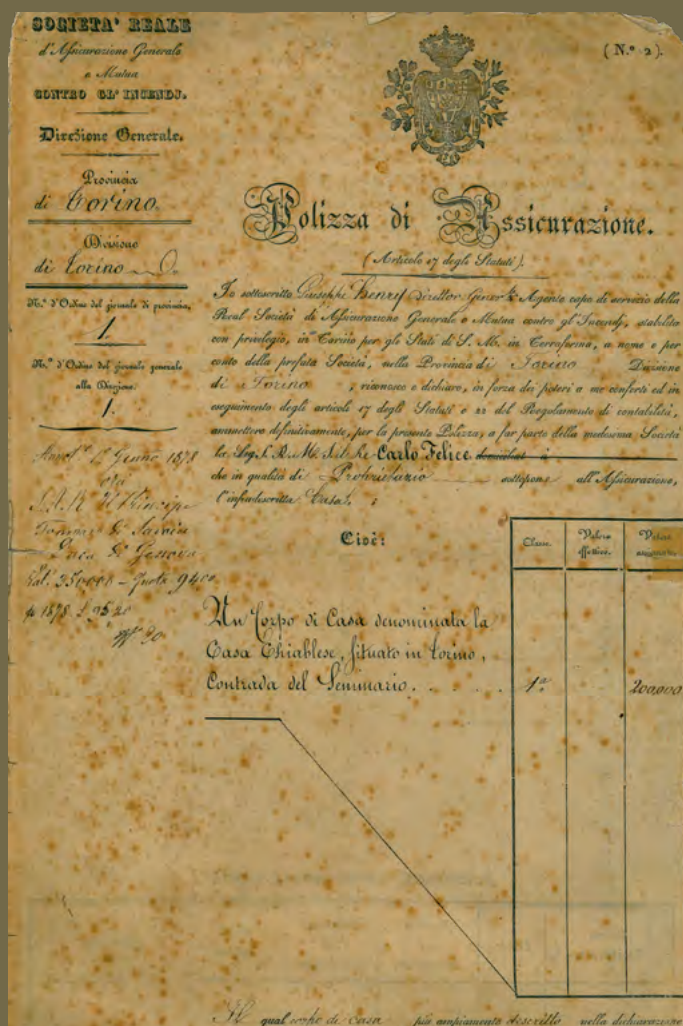 SOCIETA' REALE
d'Assicurazione Generale
e Mutua
CONTRO GL' INCENDJ.
Direzione Generale.
Provincia
di Torino.
Divisione
di Torino
N.º d'Ordine del giornale di provincia,
1.
N.º d'Ordine del giornale generale
alla Direzione.
1.
12 Genno 1878
ora
S.A.R. Il Principe
Tommaso di Savoia
Duca di Genova
Val. 350000 - Quota 9400
p 1878 £ 95 20
(N.º 2).
Polizza di Assicurazione.
(Articolo 17 degli Statuti).
Io sottoscritto Giuseppe Henry Direttor Gener.le Agente capo di servizio della
Real Società di Assicurazione Generale e Mutua contro gl'Incendj, stabilita
con privilegio, in Torino per gli Stati di S. M. in Terraferma, a nome e per
conto della prefata Società, nella Provincia di Torino Divisione
di Torino ; riconosco e dichiaro, in forza dei poteri a me conferti ed in
eseguimento degli articoli 17 degli Statuti e 22 del Regolamento di contabilità,
ammettere definitivamente, per la presente Polizza, a far parte della medesima Società
S. R. M. il Re Carlo Felice domiciliat a
che in qualità di Proprietario sottopone all'Assicurazione,
l'infradescritta Casa. :
Cioè:
Classe. Valore effettivo. Valore assicurato.
Un Corpo di Casa denominata la
Casa Chiablese, situato in Torino,
Contrada del Seminario. . . . . 1.ª 200,000
Il qual corpo di casa più ampiamente descritto nella dichiarazione